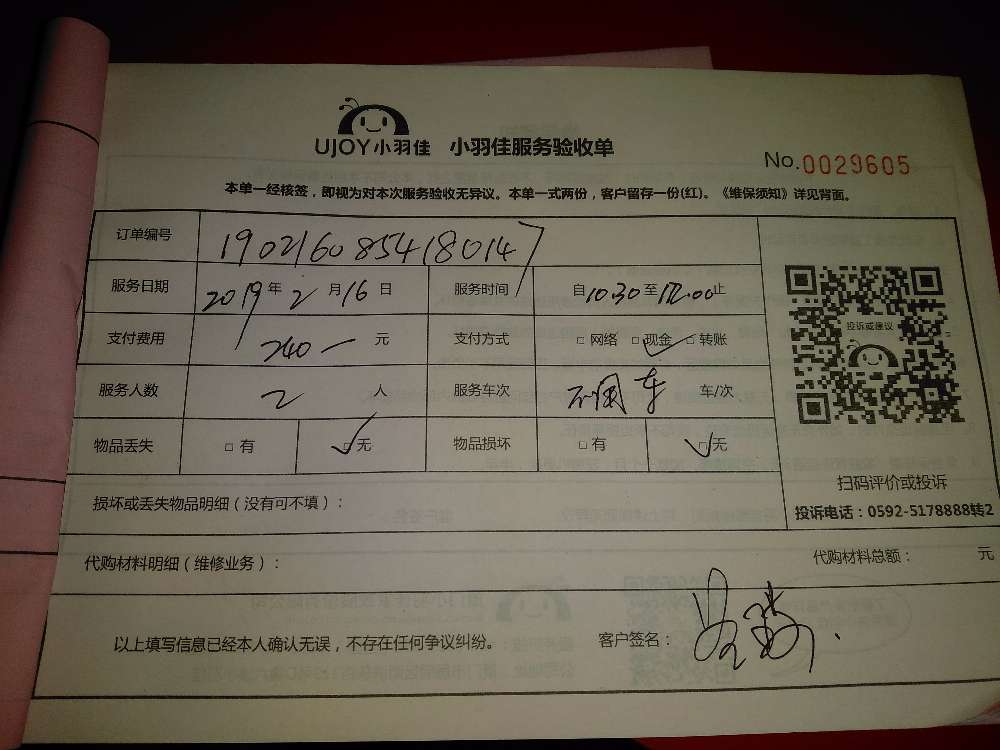 UJOY小羽佳 小羽佳服务验收单
No.0029605
本单一经核签，即视为对本次服务验收无异议。本单一式两份，客户留存一份(红)。《维保须知》详见背面。
订单编号 1902160854180147
服务日期 2019年2月16日 服务时间 自10.30至12.00止
支付费用 240一元 支付方式 □ 网络 □ 现金 ✓ □ 转账
服务人数 2人 服务车次 不用车 车/次
物品丢失 □ 有 □ 无 ✓ 物品损坏 □ 有 □ 无 ✓
投诉或建议
扫码评价或投诉
投诉电话：0592-5178888转2
损坏或丢失物品明细（没有可不填）：
代购材料明细（维修业务）： 代购材料总额： 元
以上填写信息已经本人确认无误，不存在任何争议纠纷。 客户签名：